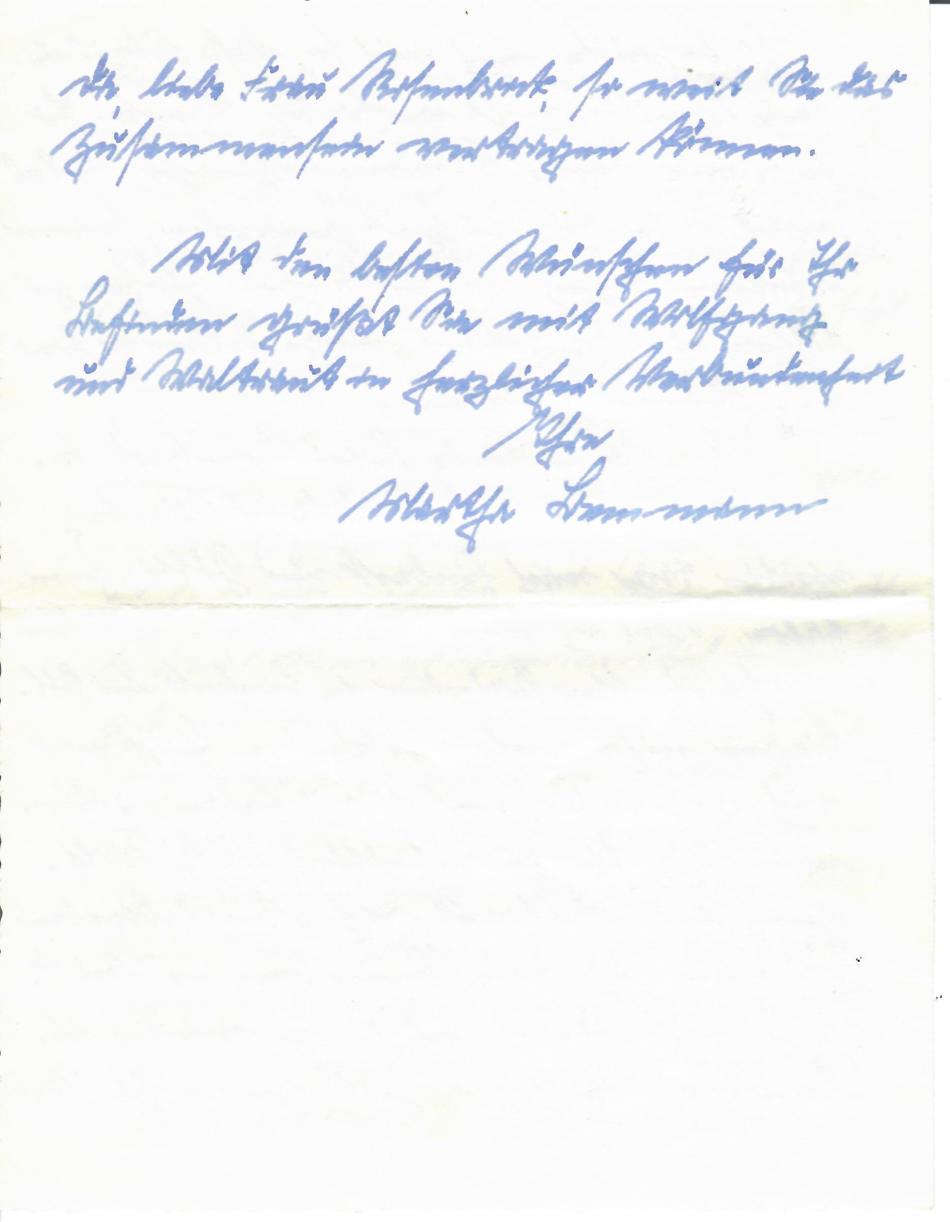 die, liebe Frau so weit Sie das
Zusammensein vertragen können.
Mit den besten Wünschen für Ihr
Befinden grüßt Sie mit Wolfgang
und Waltraut in herzlicher Verbundenheit
Ihre
Martha Bemmann